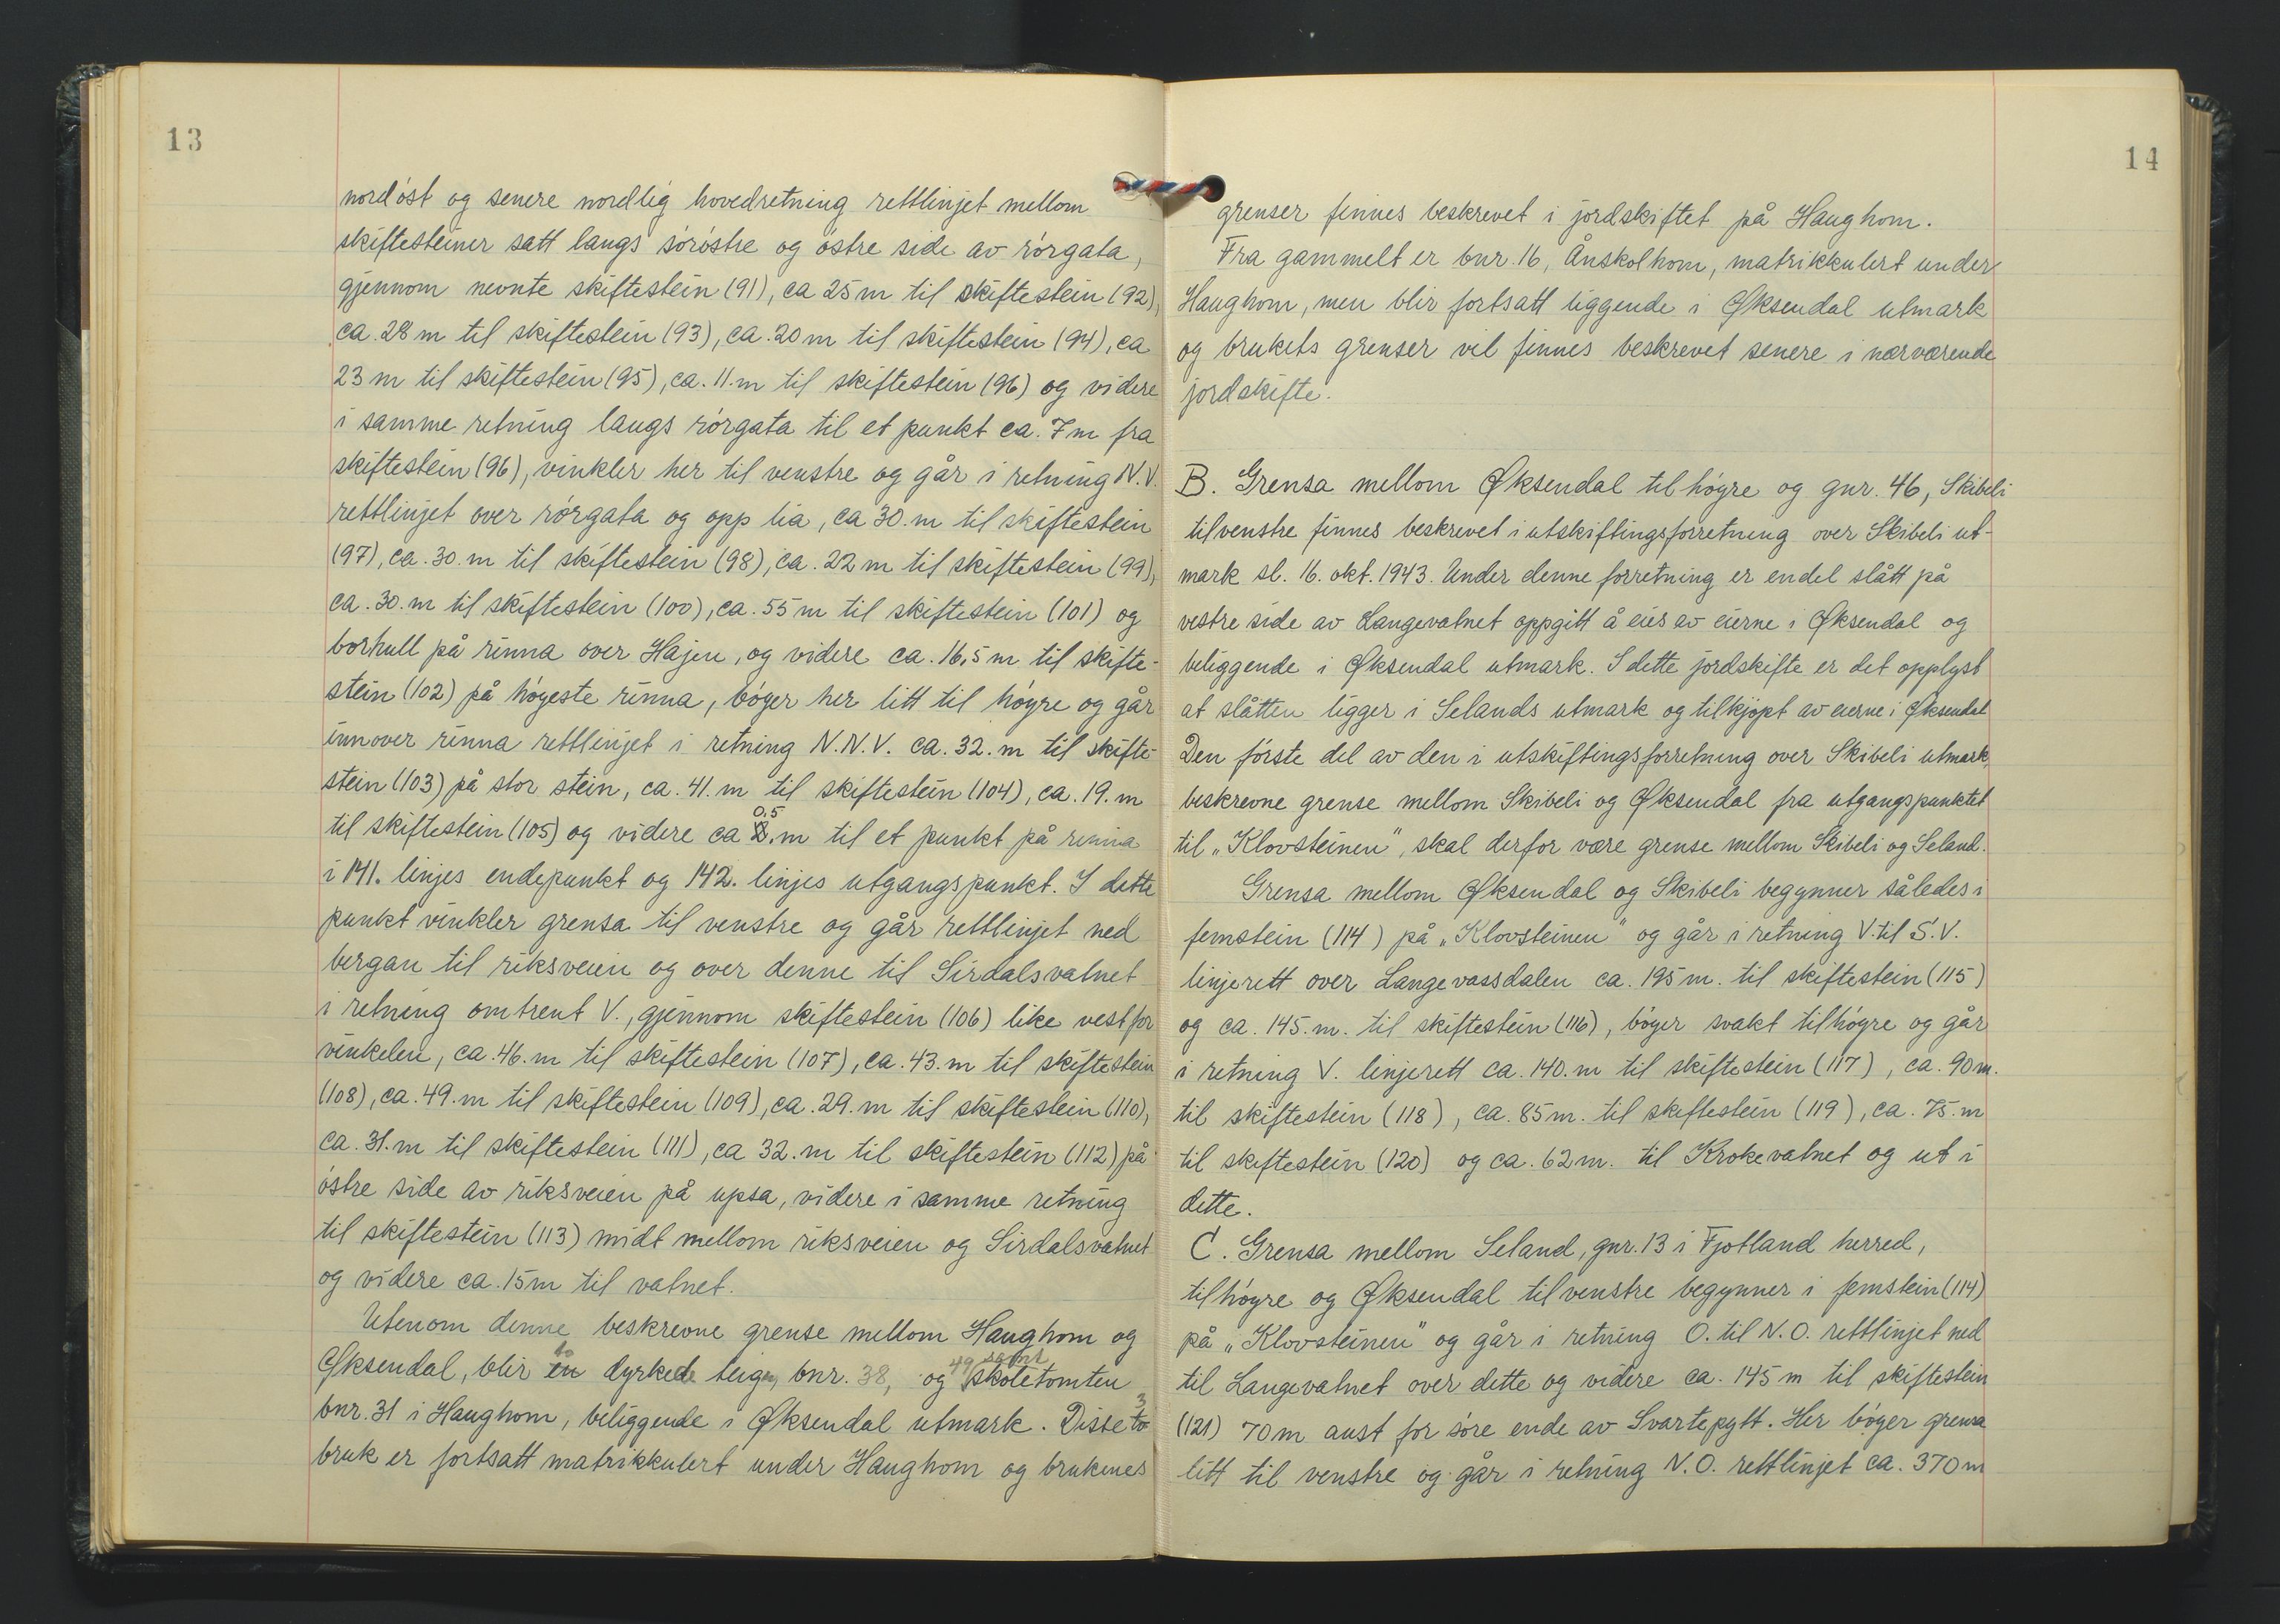 13
nordöst og senere nordlig hovedretning rettlinjet mellom
skiftesteiner satt langs söröstre og östre side av rörgata,
gjennom nevnte skiftestein (91), ca 25 m til skiftestein (92),
ca. 28 m til skiftestein (93), ca. 20 m til skiftestein (94), ca
23 m til skiftestein (95), ca. 11. m til skiftestein (96) og videre
i samme retning langs rörgata til et punkt ca. 7 m fra
skiftestein (96), vinkler her til venstre og går i retning N.V.
rettlinjet over rörgata og opp lia, ca 30. m til skiftestein
(97), ca. 30. m til skiftestein (98), ca. 22 m til skiftestein (99),
ca. 30. m til skiftestein (100), ca. 55 m til skiftestein (101) og
borhull på rinna over Hajen, og videre ca. 16,5 m til skifte-
stein (102) på högeste rinna, böger her litt til höyre og går
innover rinna rettlinjet i retning N.N.V. ca. 32. m til skifte-
stein (103) på stor stein, ca. 41. m til skiftestein (104), ca. 19. m
til skiftestein (105) og videre ca 0,5 m til et punkt på renna
i 141. linjes endepunkt og 142. linjes utgangspunkt. I dette
punkt vinkler grensa til venstre og går rettlinjet ned
bergan til riksveien og over denne til Sirdalsvatnet
i retning omtrent V., gjennom skiftestein (106) like vest for
vinkelen, ca. 46. m til skiftestein (107), ca. 43. m til skiftestein
(108), ca. 49. m til skiftestein (109), ca. 29. m til skiftestein (110),
ca. 31. m til skiftestein (111), ca 32. m til skiftestein (112) på
östre side av riksveien på upsa, videre i samme retning
til skiftestein (113) midt mellom riksveien og Sirdalsvatnet
og videre ca. 15 m til vatnet.
Utenom denne beskrevne grense mellom Haughom og
Øksendal, blir to dyrkede teiger, bnr. 38, og 49 samt skoletomten
bnr. 31 i Haughom, beliggende i Øksendal utmark. Disse 3
bruk er fortsatt matrikkulert under Haughom og brukenes
14
grenser finnes beskrevet i jordskiftet på Haughom.
Fra gammelt er bnr. 16, Ånskolhom, matrikkulert under
Haughom, men blir fortsatt liggende i Øksendal utmark
og brukets grenser vil finnes beskrevet senere i nærværende
jordskifte.
B. Grensa mellom Øksendal til högre og gnr. 46, Skibeli
til venstre finnes beskrevet i utskiftingsforretning over Skibeli ut-
mark sl. 16. okt. 1943. Under denne forretning er endel slått på
vestre side av Langevatnet oppgitt å eies av eierne i Øksendal og
beliggende i Øksendal utmark. I dette jordskifte er det opplyst
at slåtten ligger i Selands utmark og tilkjøpt av eierne i Øksendal
Den förste del av den i utskiftingsforretning over Skibeli utmark,
beskrevne grense mellom Skibeli og Øksendal fra utgangspunktet
til „Klovsteinen", skal derfor være grense mellom Skibeli og Seland.
Grensa mellom Øksendal og Skibeli begynner således i
femstein (114) på „Klovsteinen" og går i retning V. til S.V.
linjerett over Langevassdalen ca. 195 m. til skiftestein (115)
og ca. 145. m. til skiftestein (116), böger svakt til högre og går
i retning V. linjerett ca. 140. m til skiftestein (117), ca. 90 m.
til skiftestein (118), ca. 85 m. til skiftestein (119), ca. 75. m
til skiftestein (120) og ca. 62 m. til Krokevatnet og ut i
dette.
C. Grensa mellom Seland, gnr. 13 i Fjotland herred,
til höyre og Øksendal til venstre begynner i femstein (114)
på „Klovsteinen" og går i retning O. til N.O. rettlinjet ned
til Langevatnet over dette og videre ca. 145 m til skiftestein
(121) 70 m aust for söre ende av Svartepytt. Her böger grensa
litt til venstre og går i retning N.O. rettlinjet ca. 370 m